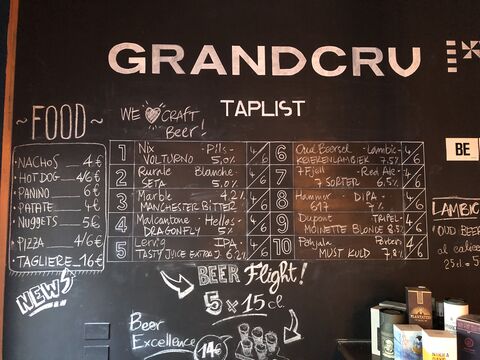 GRANDCRU
TAPLIST
~ FOOD ~
WE CRAFT
Beer!
• NACHOS 4€
• HOT DOG 4/6€
• PANINO 6€
• PATATE 4€
• NUGGETS 5€
• PIZZA 4/6€
• TAGLIERE 16€
NEW
1 Nix - Pils - 4/6
VOLTURNO 5,0%
2 Rurale Blanche 4/6
SETA 5,0%
3 Marble 4,2% 4/6
MANCHESTER BITTER
4 Malcantone - Helles 4/6
DRAGONFLY 5%
5 Lervig IPA 4/6
TASTY JUICE EXTRA J. 6,2%
6 Oud Beersel - Lambic - 4/6
KRIEKENLAMBIEK 7.5%
7 7Fjell - Red Ale 4/6
7 SORTER 6.5%
8 Hammer DIPA 4/6
617 7%
9 Dupont TRIPEL 4/6
MOINETTE BLONDE 8.5%
10 Pohjala Porter 4/6
MUST KULD 7,8%
BEER Flight!
5 x 15 cl
Beer
Excellence 14€
BE
LAMBIC
"OUD BEER
al
25cl = 5
PLANTATION
NIKKA